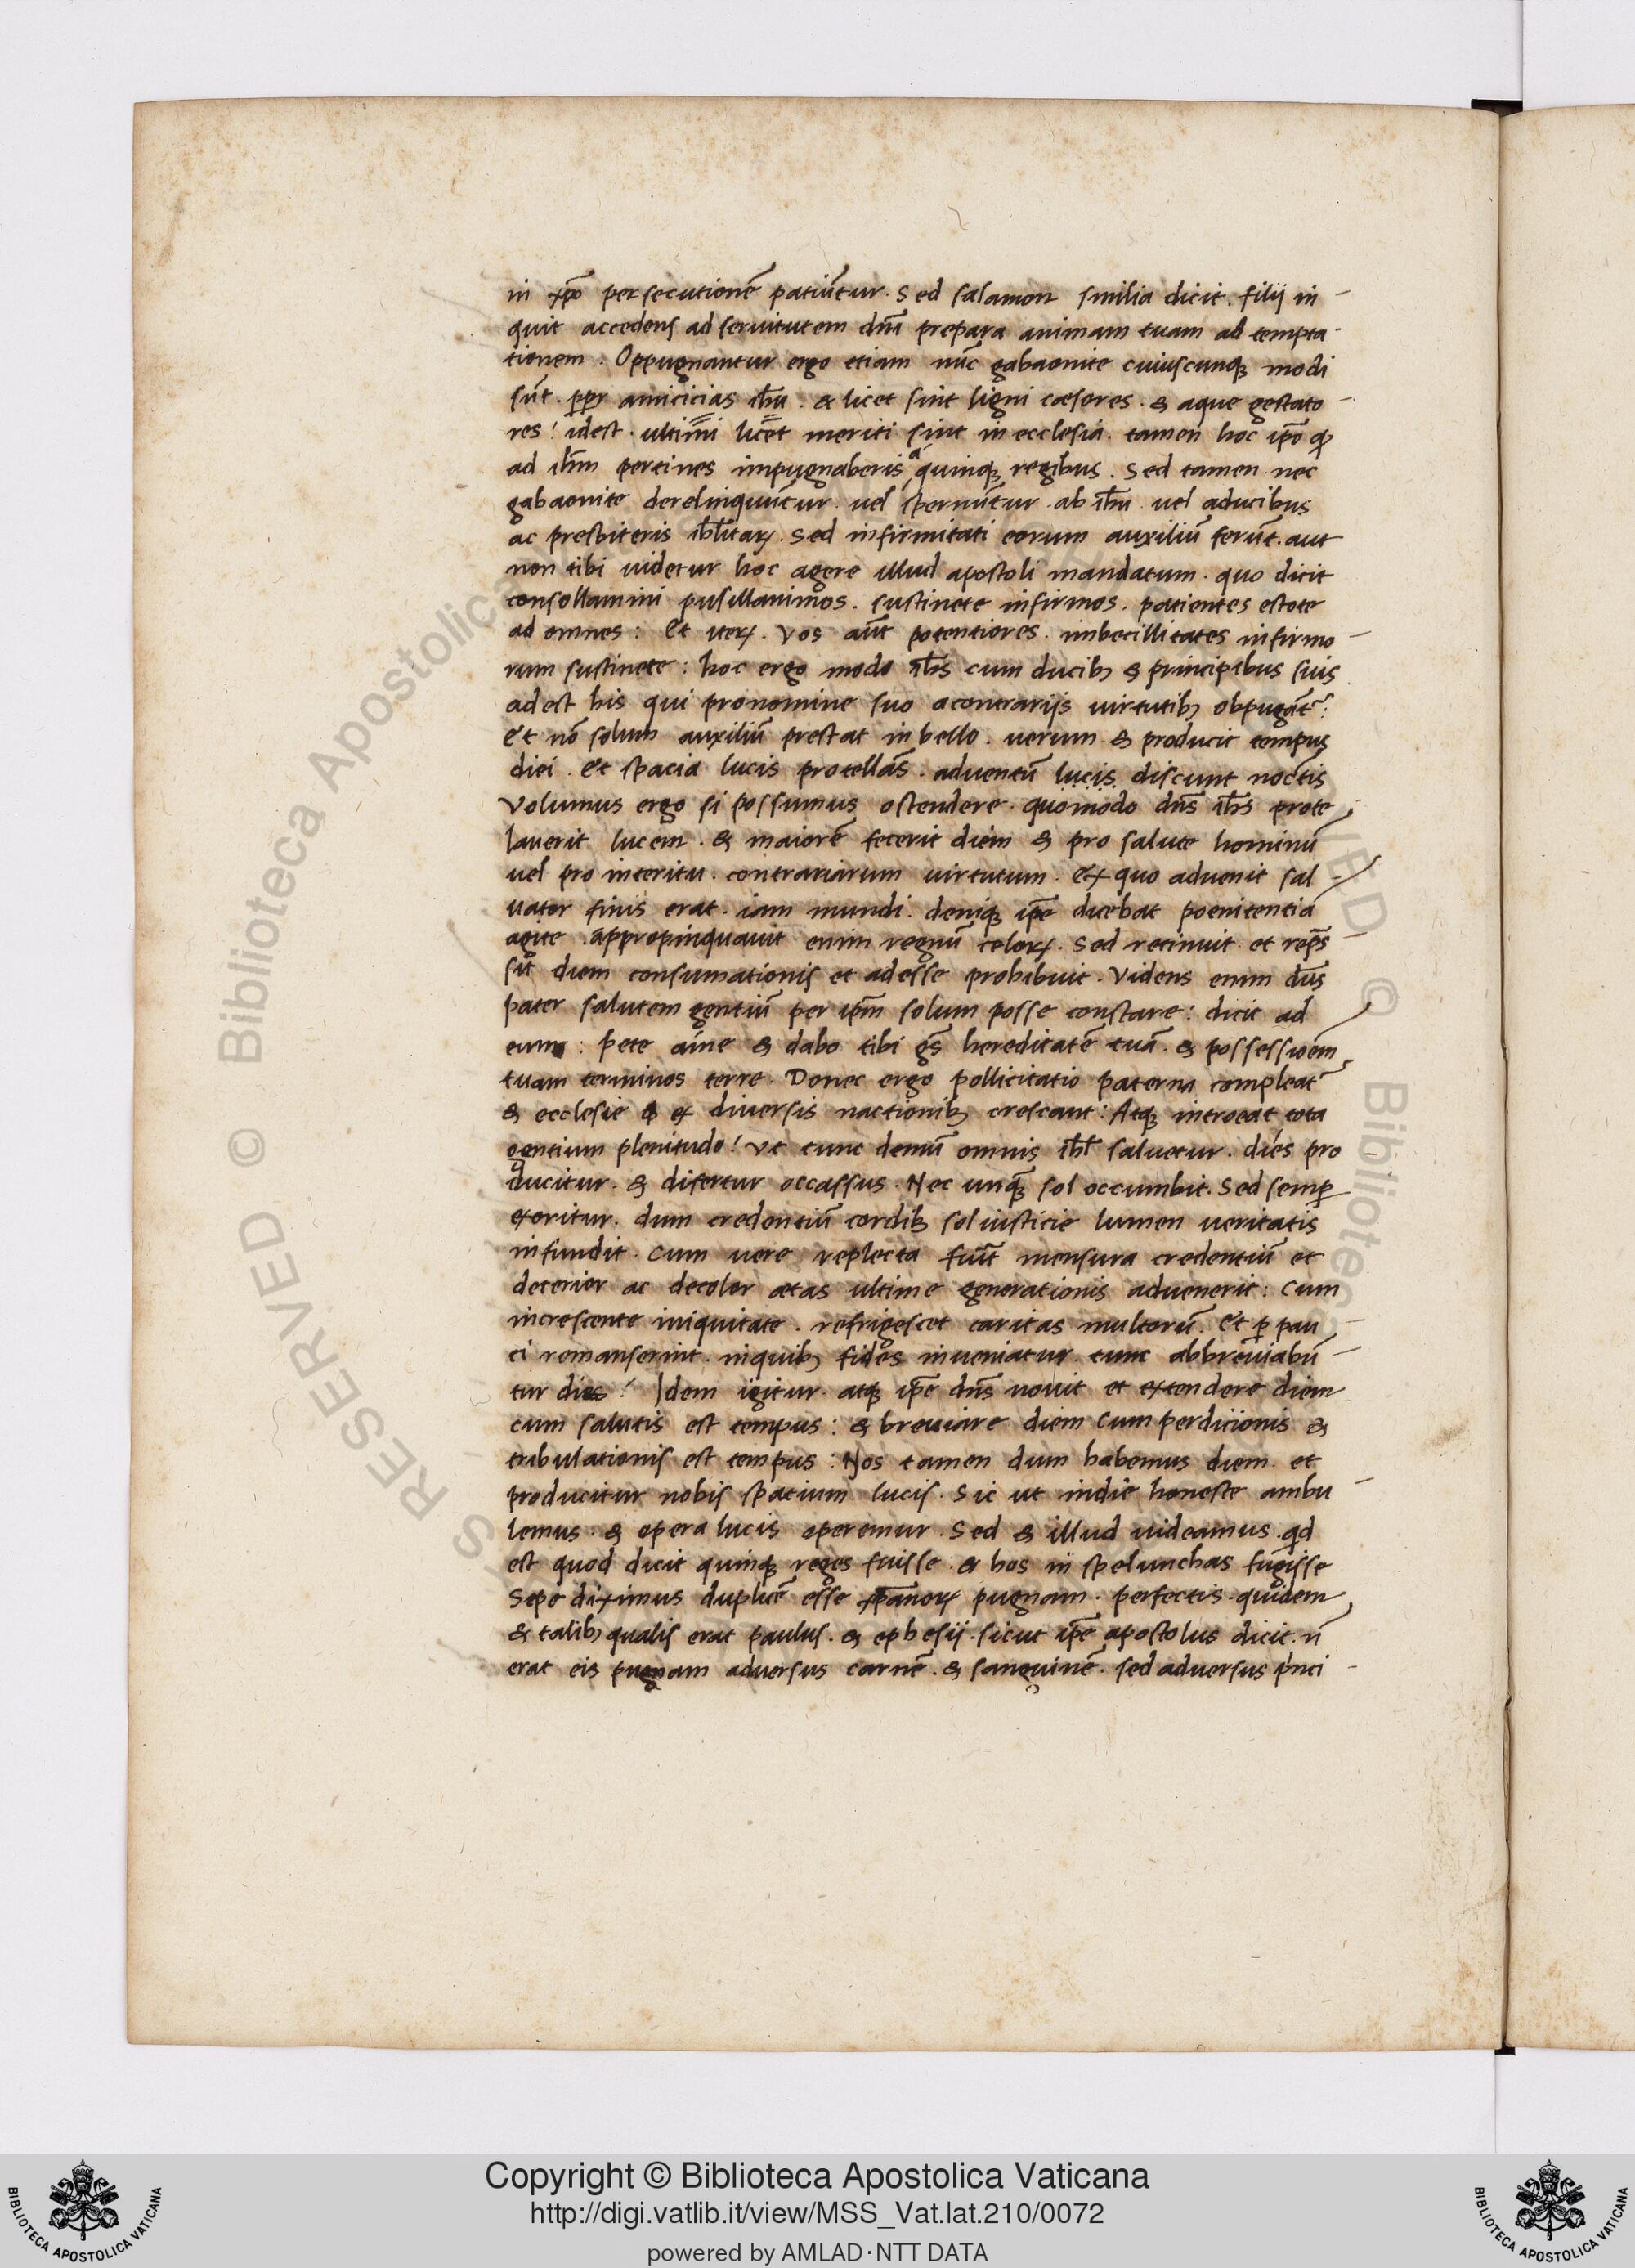 in xp̄o persecutionē patiūtur. Sed salamon similia dicit. filii in
quit accedens ad seruitutem dn̄i prepara animam tuam ad tempta
tionem. Oppugnantur ergo etiam nūc gabaonite cuiuscunqꝫ modi
sūt. ꝓpr amicicias ih̄u. & licet sint ligni cæsores. & aque gestato
res! idest. ultimi licet meriti sint in ecclesia. tamen hoc ip̄e ꝙ
ad ih̄m pertines impugnaberis a quinqꝫ regibus. Sed tamen nec
gabaonite derelinquūtur. uel spernūtur. ab ih̄u uel aducibus
ac presbiteris ih̄litaꝝ. Sed infirmitati eorum auxiliū ferūt. aut
non tibi uidetur hoc agere illud apostoli mandatum. quo dicit
consollamini pusillanimos. sustinete infirmos. patientes estote
ad omnes: Et iteꝝ. Vos aūt potentiores. imbecillitates infirmo
rum sustinete: hoc ergo modo ih̄s cum ducibꝫ & principibus suis
adest his qui pronomine suo acontrariis uirtutibꝫ obpugāt᷑:
Et nō solum auxiliū prestat in bello. uerum & producit tempus
diei. Et spacia lucis protellās. aduentū lucis discunt noctis
Volumus ergo si possumus ostendere. quomodo dn̄s ih̄s prote
lauerit lucem. & maiorē fecerit diem & pro salute hominū
uel pro interitu. contrariarum uirtutum. Ex quo aduenit sal
uator finis erat. iam mundi. deniqꝫ ip̄e dicebat poenitentiā
agite. appropinquauit enim regnū celoꝝ. Sed retinuit et rep̄s
sit diem consumationis et adesse prohibuit. Videns enim ds̄
pater salutem gentiū per ip̄m solum posse constare: dicit ad
eum: Pete a me & dabo tibi gs̄ hereditatē tuā. & possessioēm
tuam terminos terre. Donec ergo pollicitatio paterna compleat᷑
& ecclesie & ex diuersis nactionibꝫ crescant: Atqꝫ introeat tota
gentium plenitudo! Vt tunc demū omnis ih̄l saluetur. dies pro
ducitur. & difertur occassus. Nec unqꝫ sol occumbit. Sed semꝑ
exoritur. dum credentiū cordibꝫ sol iusticie lumen ueritatis
infundit. Cum uere replecta fuīt mensura credentiū et
deterior ac decolor ætas ultime generationis aduenerit: Cum
increscente iniquitate. refrigescet caritas multorū. Et ꝑ pau
ci remanserint. inquibꝫ fides inueniatur. tunc abbreuiabū
tur dies! Idem igitur atqꝫ ip̄e dn̄s nouit et extendere diem
cum salutis est tempus: & breuiare diem cum perdicionis &
tribulationis est tempus: Nos tamen dum habemus diem et
producitur nobis spacium lucis. Sic ut indie honeste ambu
lemus. & opera lucis operemur. Sed & illud uideamus. qd̄
est quod dicit quinqꝫ reges fuisse & hos in spelunchas fugisse
Sepe diximus duplicē esse xp̄anoꝝ pugnam. perfectis. quidem
& talibꝫ qualis erat paulus. & ephesii. sicut ip̄e apostolus dicit. n̄
erat eis pugnam aduersus carnē. & sanguinē. sed aduersus pnci
Copyright © Biblioteca Apostolica Vaticana
http://digi.vatlib.it/view/MSS_Vat.lat.210/0072
powered by AMLAD·NTT DATA